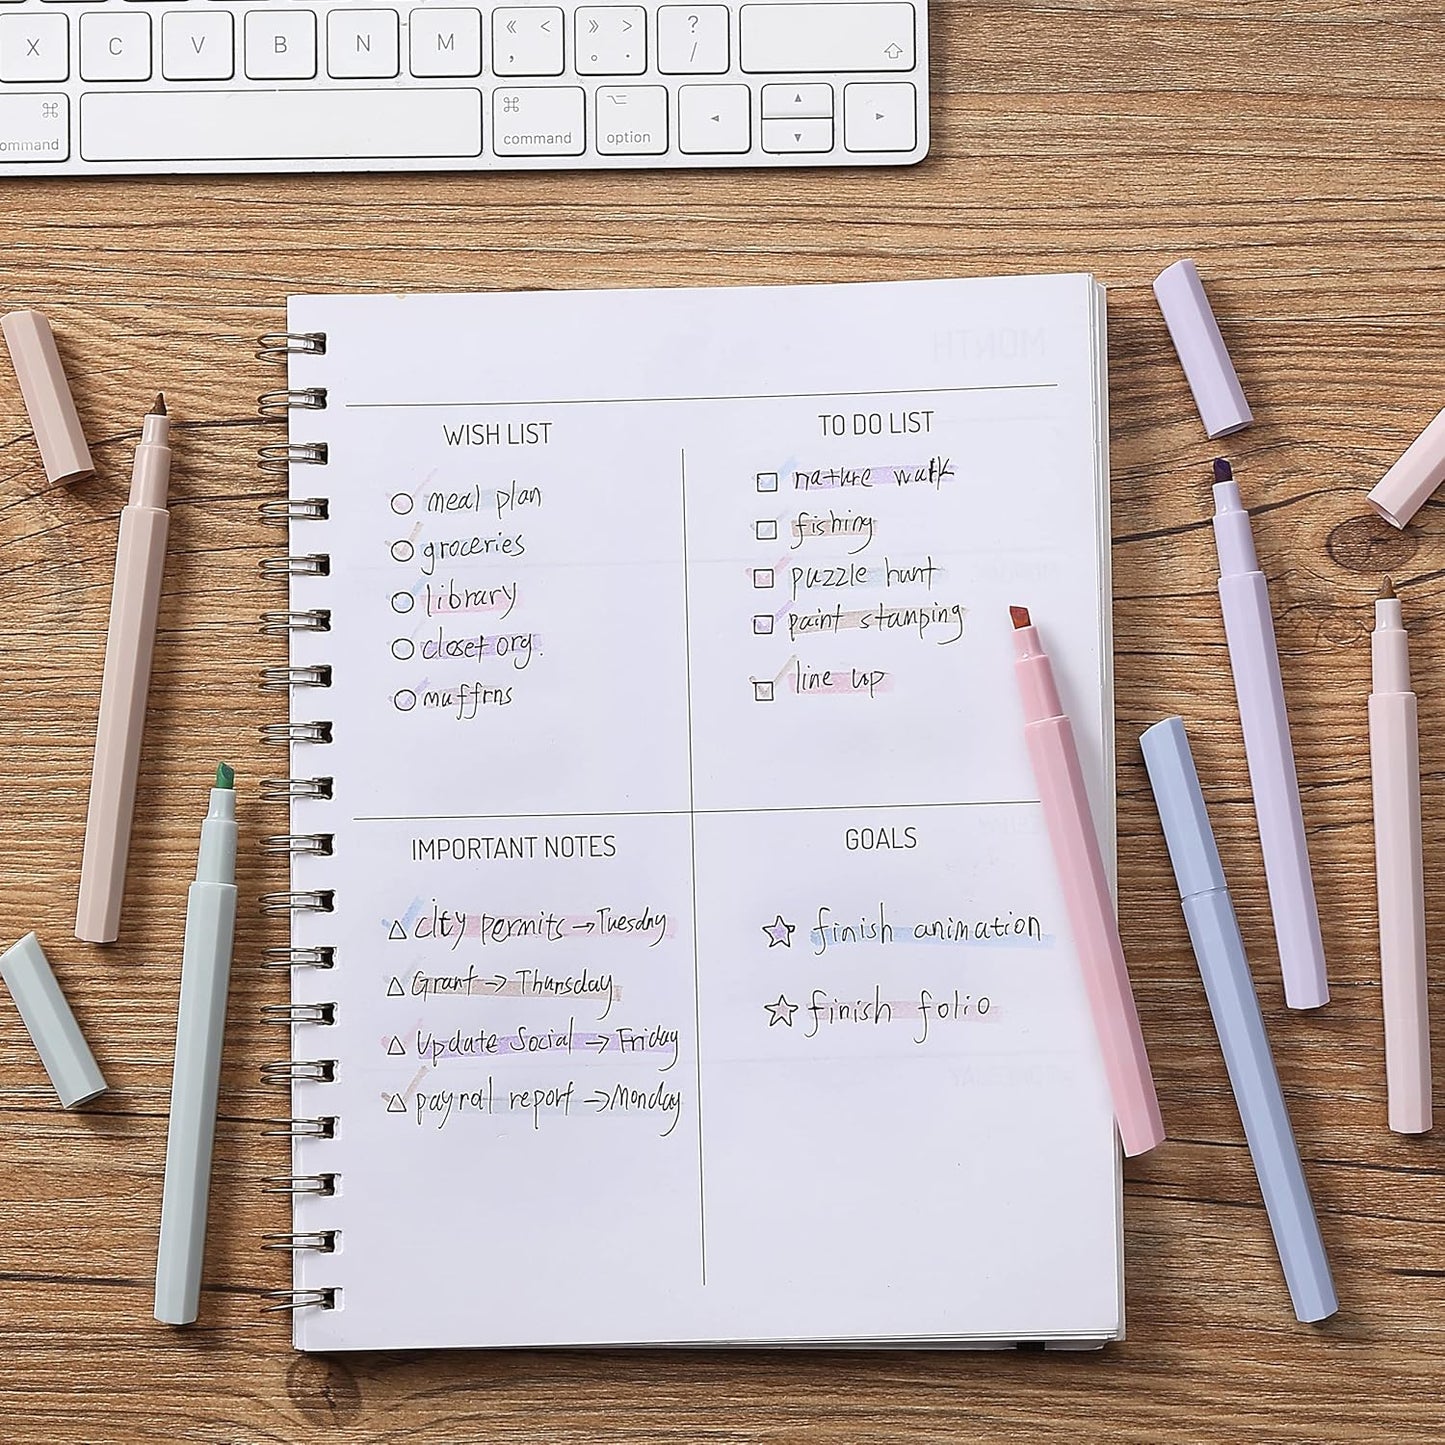 X C V B N M « < , » > 。 . ? /
⌘ command ⌘ command ⌥ option
MONTH
WISH LIST
meal plan
groceries
library
closet org.
muffins
TO DO LIST
nature walk
fishing
puzzle hunt
paint stamping
line up
IMPORTANT NOTES
city permits → Tuesday
Grant → Thursday
Update Social → Friday
payroll report → Monday
GOALS
finish animation
finish folio